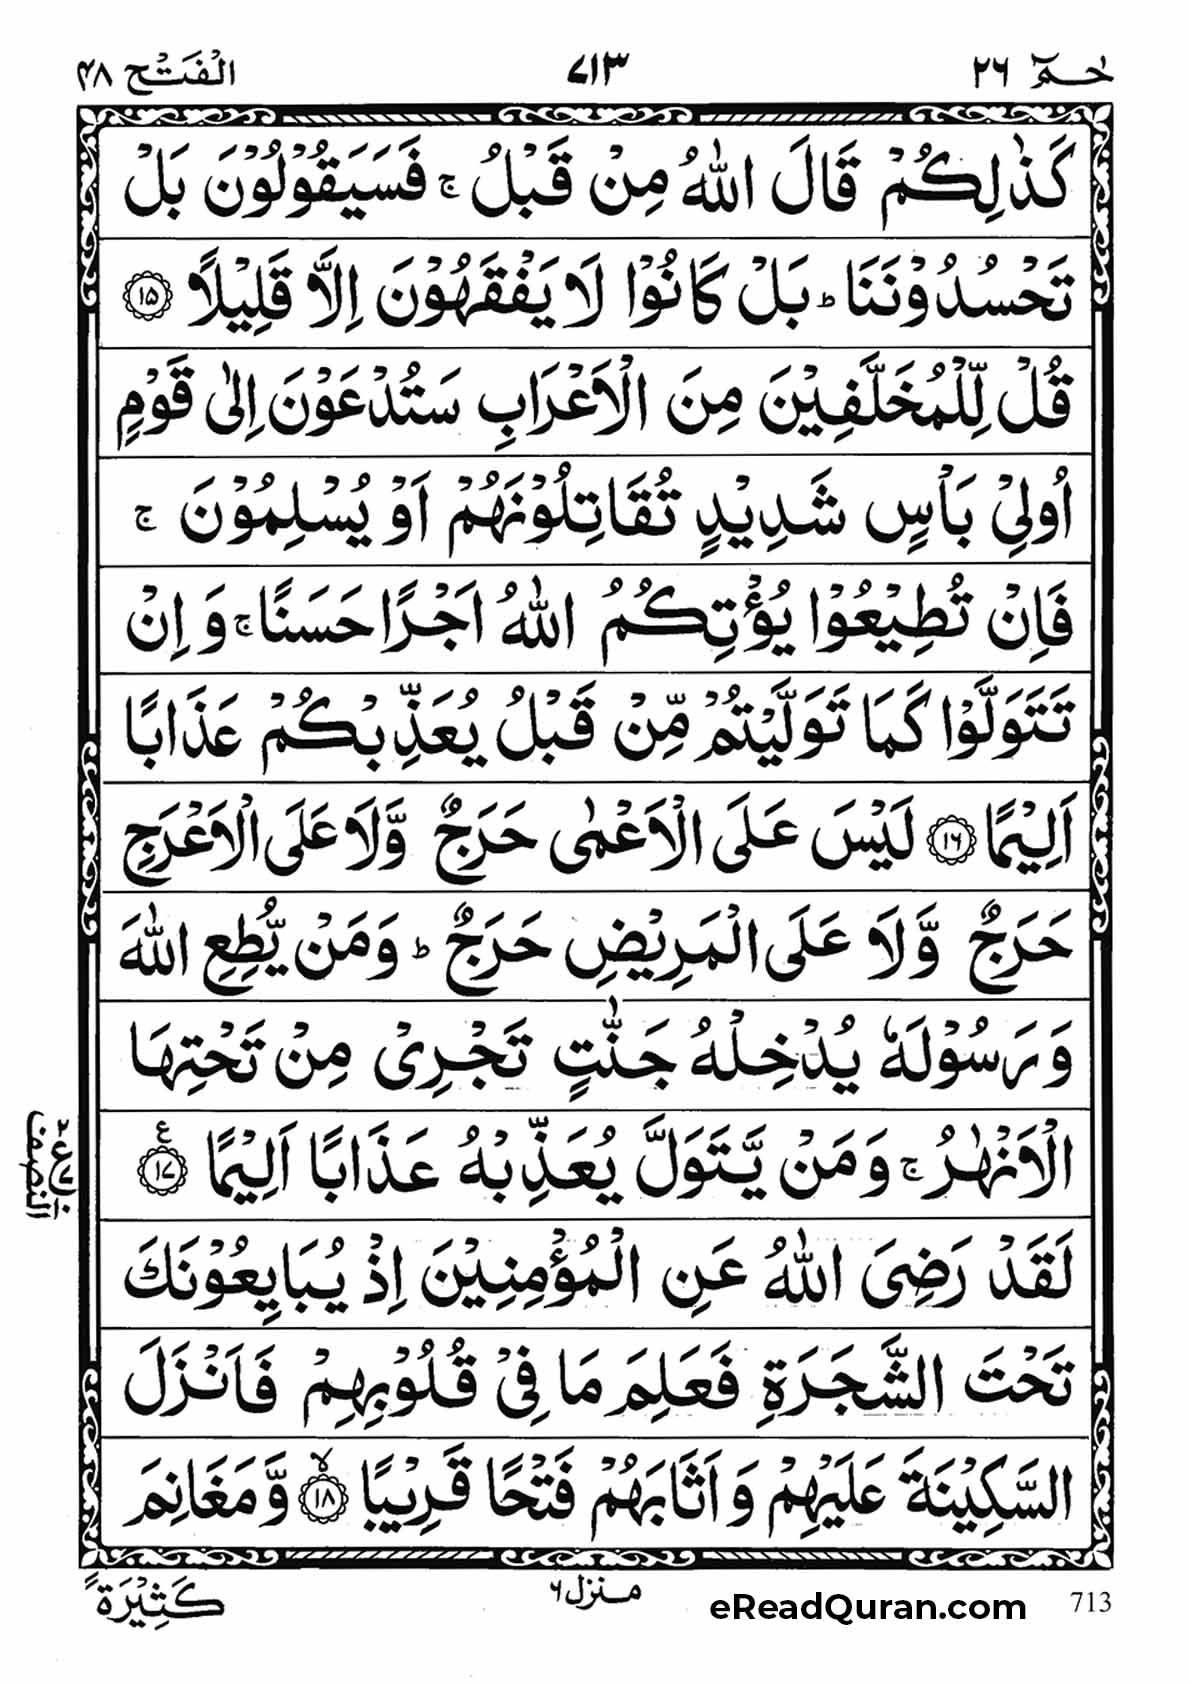 حٰمٓ ٢٦
٧١٣
الْفَتْح ٤٨
كَذٰلِكُمْ قَالَ اللّٰهُ مِنْ قَبْلُ ۚ فَسَيَقُوْلُوْنَ بَلْ
تَحْسُدُوْنَنَا ؕ بَلْ كَانُوْا لَا يَفْقَهُوْنَ اِلَّا قَلِيْلًا ۝۱۵
قُلْ لِّلْمُخَلَّفِيْنَ مِنَ الْاَعْرَابِ سَتُدْعَوْنَ اِلٰى قَوْمٍ
اُولِيْ بَاْسٍ شَدِيْدٍ تُقَاتِلُوْنَهُمْ اَوْ يُسْلِمُوْنَ ۚ
فَاِنْ تُطِيْعُوْا يُؤْتِكُمُ اللّٰهُ اَجْرًا حَسَنًا ۚ وَ اِنْ
تَتَوَلَّوْا كَمَا تَوَلَّيْتُمْ مِّنْ قَبْلُ يُعَذِّبْكُمْ عَذَابًا
اَلِيْمًا ۝۱۶ لَيْسَ عَلَى الْاَعْمٰى حَرَجٌ وَّلَا عَلَى الْاَعْرَجِ
حَرَجٌ وَّلَا عَلَى الْمَرِيْضِ حَرَجٌ ؕ وَمَنْ يُّطِعِ اللّٰهَ
وَرَسُوْلَهٗ يُدْخِلْهُ جَنّٰتٍ تَجْرِيْ مِنْ تَحْتِهَا
الْاَنْهٰرُ ۚ وَمَنْ يَّتَوَلَّ يُعَذِّبْهُ عَذَابًا اَلِيْمًا ۝۱۷ ع
النصف
لَقَدْ رَضِيَ اللّٰهُ عَنِ الْمُؤْمِنِيْنَ اِذْ يُبَايِعُوْنَكَ
تَحْتَ الشَّجَرَةِ فَعَلِمَ مَا فِيْ قُلُوْبِهِمْ فَاَنْزَلَ
السَّكِيْنَةَ عَلَيْهِمْ وَ اَثَابَهُمْ فَتْحًا قَرِيْبًا ۝۱۸ ۙ وَّمَغَانِمَ
كَثِيْرَةً
منزل ٦
eReadQuran.com
713